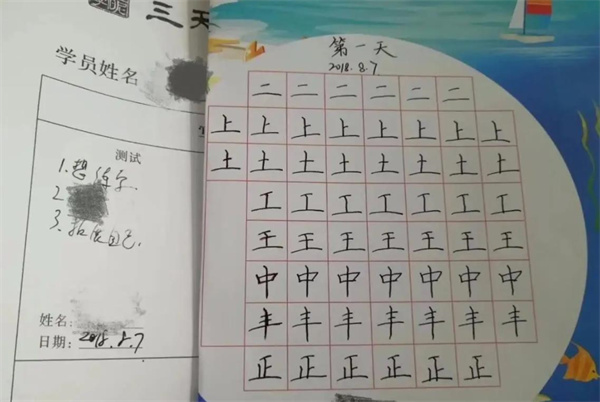 三天
学员姓名
测试
1.想练字.
2
3.拓展自己.
姓名:
日期: 2018.8.7
第一天
2018.8.7
二 二 二 二 二 二
上 上 上 上 上 上 上 上
土 土 土 土 土 土 土 土
工 工 工 工 工 工 工
王 王 王 王 王 王 王
中 中 中 中 中 中 中
丰 丰 丰 丰 丰 丰 丰
正 正 正 正 正 正